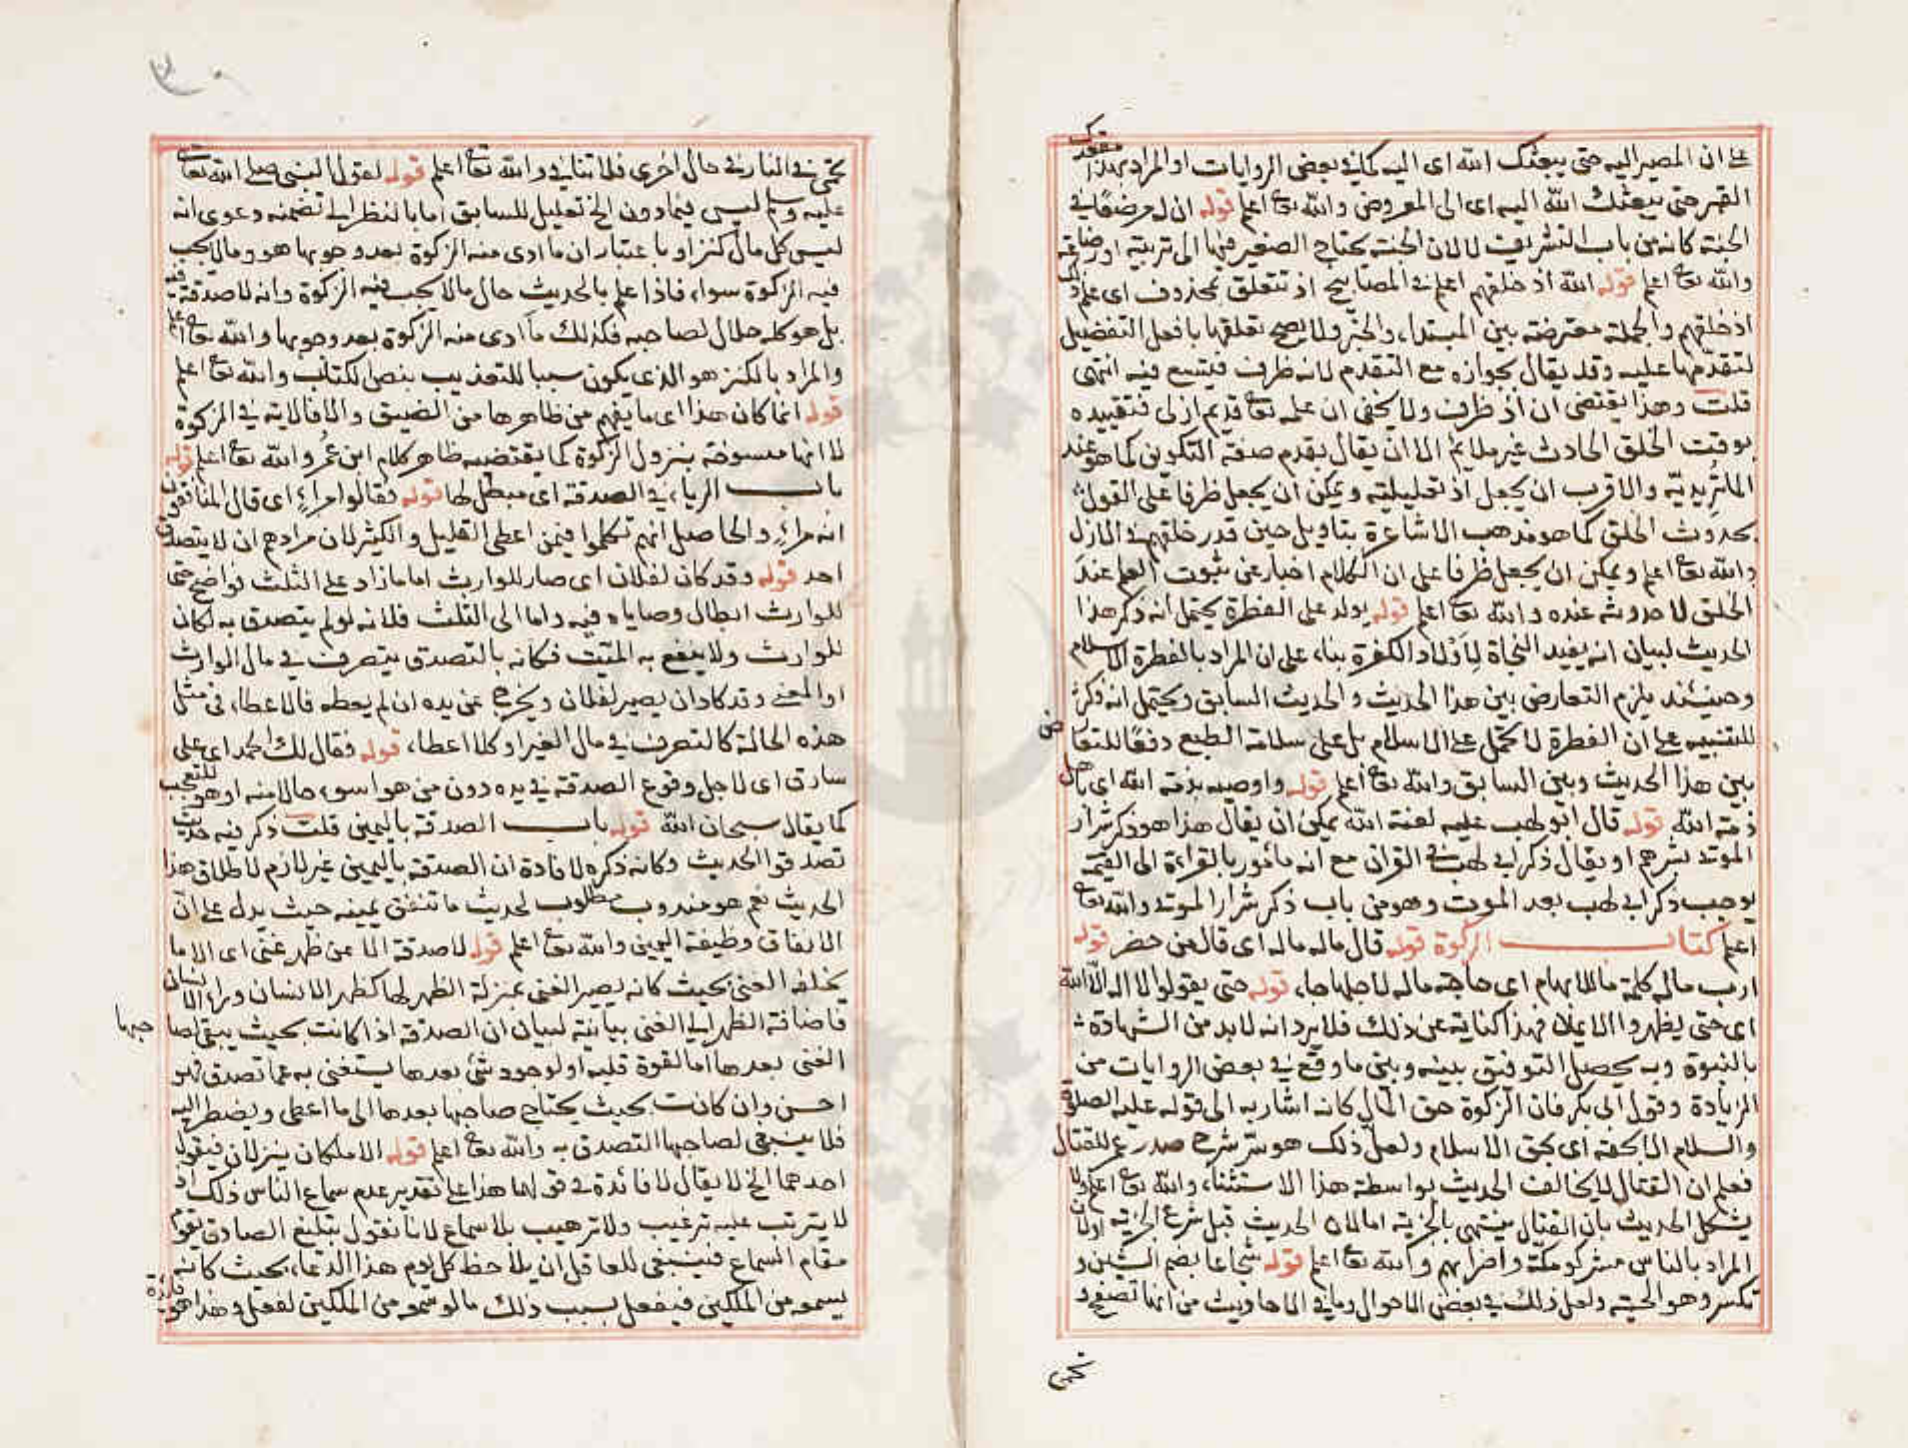 على ان المصير اليه حتى يبعثك الله اى اليه كما فى بعض الروايات او المراد بهذا مقعدك
القبر حتى يبعثك الله اليه اى الى المعروض والله تع اعلم قوله ان له مرضعا فى
الجنة كانه من باب التشريف لا لان الجنة يحتاج الصغير فيها الى تربية او رضاعة
والله تع اعلم قوله الله اذ خلقهم اعلم فى المصابيح اذ تتعلق بمحذوف اى علم ذلك
اذ خلقهم والجملة معترضة بين المبتداء والخبر ولا يصح تعلقها بافعل التفضيل
لتقدمها عليه وقد يقال بجوازه مع التقدم لانه ظرف فيتسع فيه انتهى
قلت وهذا يقتضى ان اذ ظرف ولا يخفى ان علمه تع قديم ازلى فتقييده
بوقت الخلق الحادث غير ملايم الا ان يقال بقدم صفة التكوين كما هو عند
الماتريدية والاقرب ان يجعل اذ تعليلية ويمكن ان يجعل ظرفا على القول
بحدوث الخلق كما هو مذهب الاشاعرة بتاويل حين قدر خلقهم فى الازل
والله تع اعلم ويمكن ان يجعل ظرفا على ان الكلام اخبار عن ثبوت العلم عند
الخلق لا حدوثه عنده والله تع اعلم قوله يولد على الفطرة يحتمل انه ذكر هذا
الحديث لبيان انه يفيد النجاة لاولاد الكفرة بناء على ان المراد بالفطرة الاسلام
وحينئذ يلزم التعارض بين هذا الحديث والحديث السابق ويحتمل انه ذكر
للتنبيه على ان الفطرة لا تحمل على الاسلام بل على سلامة الطبع دفعا للتعارض
بين هذا الحديث وبين السابق والله تع اعلم قوله واوصيه بذمة الله اى باهل
ذمة الله قوله قال ابو لهب عليه لعنة الله يمكن ان يقال هذا هو ذكر شرار
الموتى بشرهم او يقال ذكر ابى لهب فى القران مع انه مأمور بالقراءة الى القيمة
يوجب ذكر ابى لهب بعد الموت وهو من باب ذكر شرار الموتى والله تع
اعلم كتاب الزكوة قوله قال ماله ماله اى قال من حضر قوله
ارب ماله كلمة ما للابهام اى حاجة ماله لاجلها جاء قوله حتى يقولوا لا اله الا الله
اى حتى يظهروا الايمان فهذا كناية عن ذلك فلا يرد انه لا بد من الشهادة
بالنبوة وبه يحصل التوفيق بينه وبين ما وقع فى بعض الروايات من
الزيادة وقول ابى بكر فان الزكوة حق المال كانه اشار به الى قوله عليه الصلوة
والسلام الا بحقه اى بحق الاسلام ولعل ذلك هو سر شرح صدر عمر للقتال
فعلم ان القتال لا يخالف الحديث بواسطة هذا الاستثناء والله تع اعلم ولا
يشكل الحديث بان القتال ينتهى بالجزية اما لان الحديث قبل شرع الجزية او لان
المراد بالناس مشركو مكة واضرابهم والله تع اعلم قوله شجاعا بضم الشين و
تكسر وهو الحية ولعل ذلك فى بعض الاحوال وما فى الاحاديث من انها تصفح و
تحمى
تحمى فى النار فى حال اخرى فلا تنافى والله تع اعلم قوله لقول النبى صلى الله تع
عليه وسلم ليس فيما دون الخ تعليل للسابق اما بالنظر الى تضمنه دعوى انه
ليس كل مال كنز او باعتبار ان ما ادى منه الزكوة بعد وجوبها هو وما لا يجب
فيه الزكوة سواء فاذا علم بالحديث حال ما لا يجب فيه الزكوة وانه لا صدقة فيه
بل هو كله حلال لصاحبه فكذلك ما ادى منه الزكوة بعد وجوبها والله تع اعلم
والمراد بالكنز هو الذى يكون سببا للتعذيب بنص الكتاب والله تع اعلم
قوله انما كان هذا اى ما يفهم من ظاهرها من الضيق والا فالاية فى الزكوة
لا انها منسوخة بنزول الزكوة كما يقتضيه ظاهر كلام ابن عمر والله تع اعلم قوله
باب الرياء فى الصدقة اى مبطل لها قوله فقالوا مراء اى قال المنافقون
انه مراء والحاصل انهم تكلموا فيمن اعطى القليل والكثير لان مرادهم ان لا يتصدق
احد قوله وقد كان لفلان اى صار للوارث اما ما زاد على الثلث فواضح حتى
للوارث ابطال وصاياه فيه واما الى الثلث فلانه لو لم يتصدق به لكان
للوارث ولا ينفع به الميت فكانه بالتصدق يتصرف فى مال الوارث
او المعنى وقد كاد ان يصير لفلان ويخرج عن يده ان لم يعطه فالاعطاء فى مثل
هذه الحالة كالتصرف فى مال الغير او كلا اعطاء قوله فقال لك الحمد اى على
سارق اى لاجل وقوع الصدقة فى يده دون من هو اسوء حالا منه او هو للتعجب
كما يقال سبحان الله قوله باب الصدقة باليمين قلت ذكر فيه حديث
تصدقوا الحديث وكانه ذكره لافادة ان الصدقة باليمين غير لازم لاطلاق هذا
الحديث نعم هو مندوب مطلوب لحديث ما تنفق يمينه حيث يدل على ان
الانفاق وظيفة اليمين والله تع اعلم قوله لا صدقة الا عن ظهر غنى اى الا ما
يخلفه الغنى بحيث كانه يصير الغنى بمنزلة الظهر لها كظهر الانسان وراء الانسان
فاضافة الظهر الى الغنى بيانية لبيان ان الصدقة اذا كانت بحيث يبقى لصاحبها
الغنى بعدها اما لقوة قلبه او لوجود شئ بعدها يستغنى به عما تصدق فهو
احسن وان كانت بحيث يحتاج صاحبها بعدها الى ما اعطى ويضطر اليه
فلا ينبغى لصاحبها التصدق به والله تع اعلم قوله الا ملكان ينزلان فيقول
احدهما الخ لا يقال لا فائدة فى قولهما هذا على تقدير عدم سماع الناس ذلك اذ
لا يترتب عليه ترغيب ولا ترهيب بلا سماع لانا نقول تبليغ الصادق يقوم
مقام السماع فينبغى للعاقل ان يلاحظ كل يوم هذا الدعاء بحيث كانه
يسمعه من الملكين فيفعل بسبب ذلك ما لو سمعه من الملكين لفعل وهذا هو فائدة